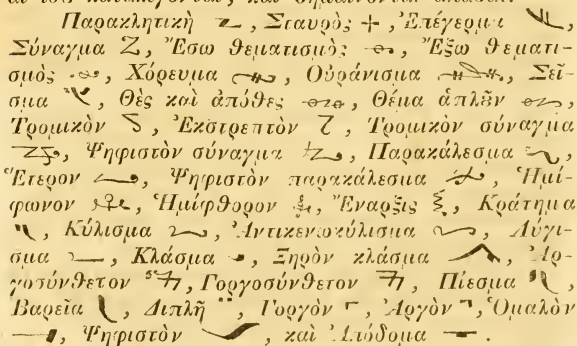 αἱ τοῦ καταλέγονται, καὶ σημαίνονται
Παρακλητικὴ , Σταυρὸς , Ἐπέγερμα ,
Σύναγμα , Ἔσω θεματισμὸς , Ἔξω θεματι-
σμὸς , Χόρευμα , Οὐράνισμα , Σεῖ-
σμα , Θὲς καὶ ἀπόθες , Θέμα ἁπλῆν ,
Τρομικὸν , Ἐκστρεπτὸν , Τρομικὸν σύναγμα
, Ψηφιστὸν σύναγμα , Παρακάλεσμα ,
Ἕτερον , Ψηφιστὸν παρακάλεσμα , Ἡμί-
φωνον , Ἡμίφθορον , Ἔναρξις , Κράτημα
, Κύλισμα , Ἀντικενωκύλισμα , Λύγι-
σμα , Κλάσμα , Ξηρὸν κλάσμα , Ἀρ-
γοσύνθετον , Γοργοσύνθετον , Πίεσμα ,
Βαρεῖα , Διπλῆ , Γοργὸν , Ἀργὸν , Ὁμαλὸν
, Ψηφιστὸν , καὶ Ἀπόδομα .